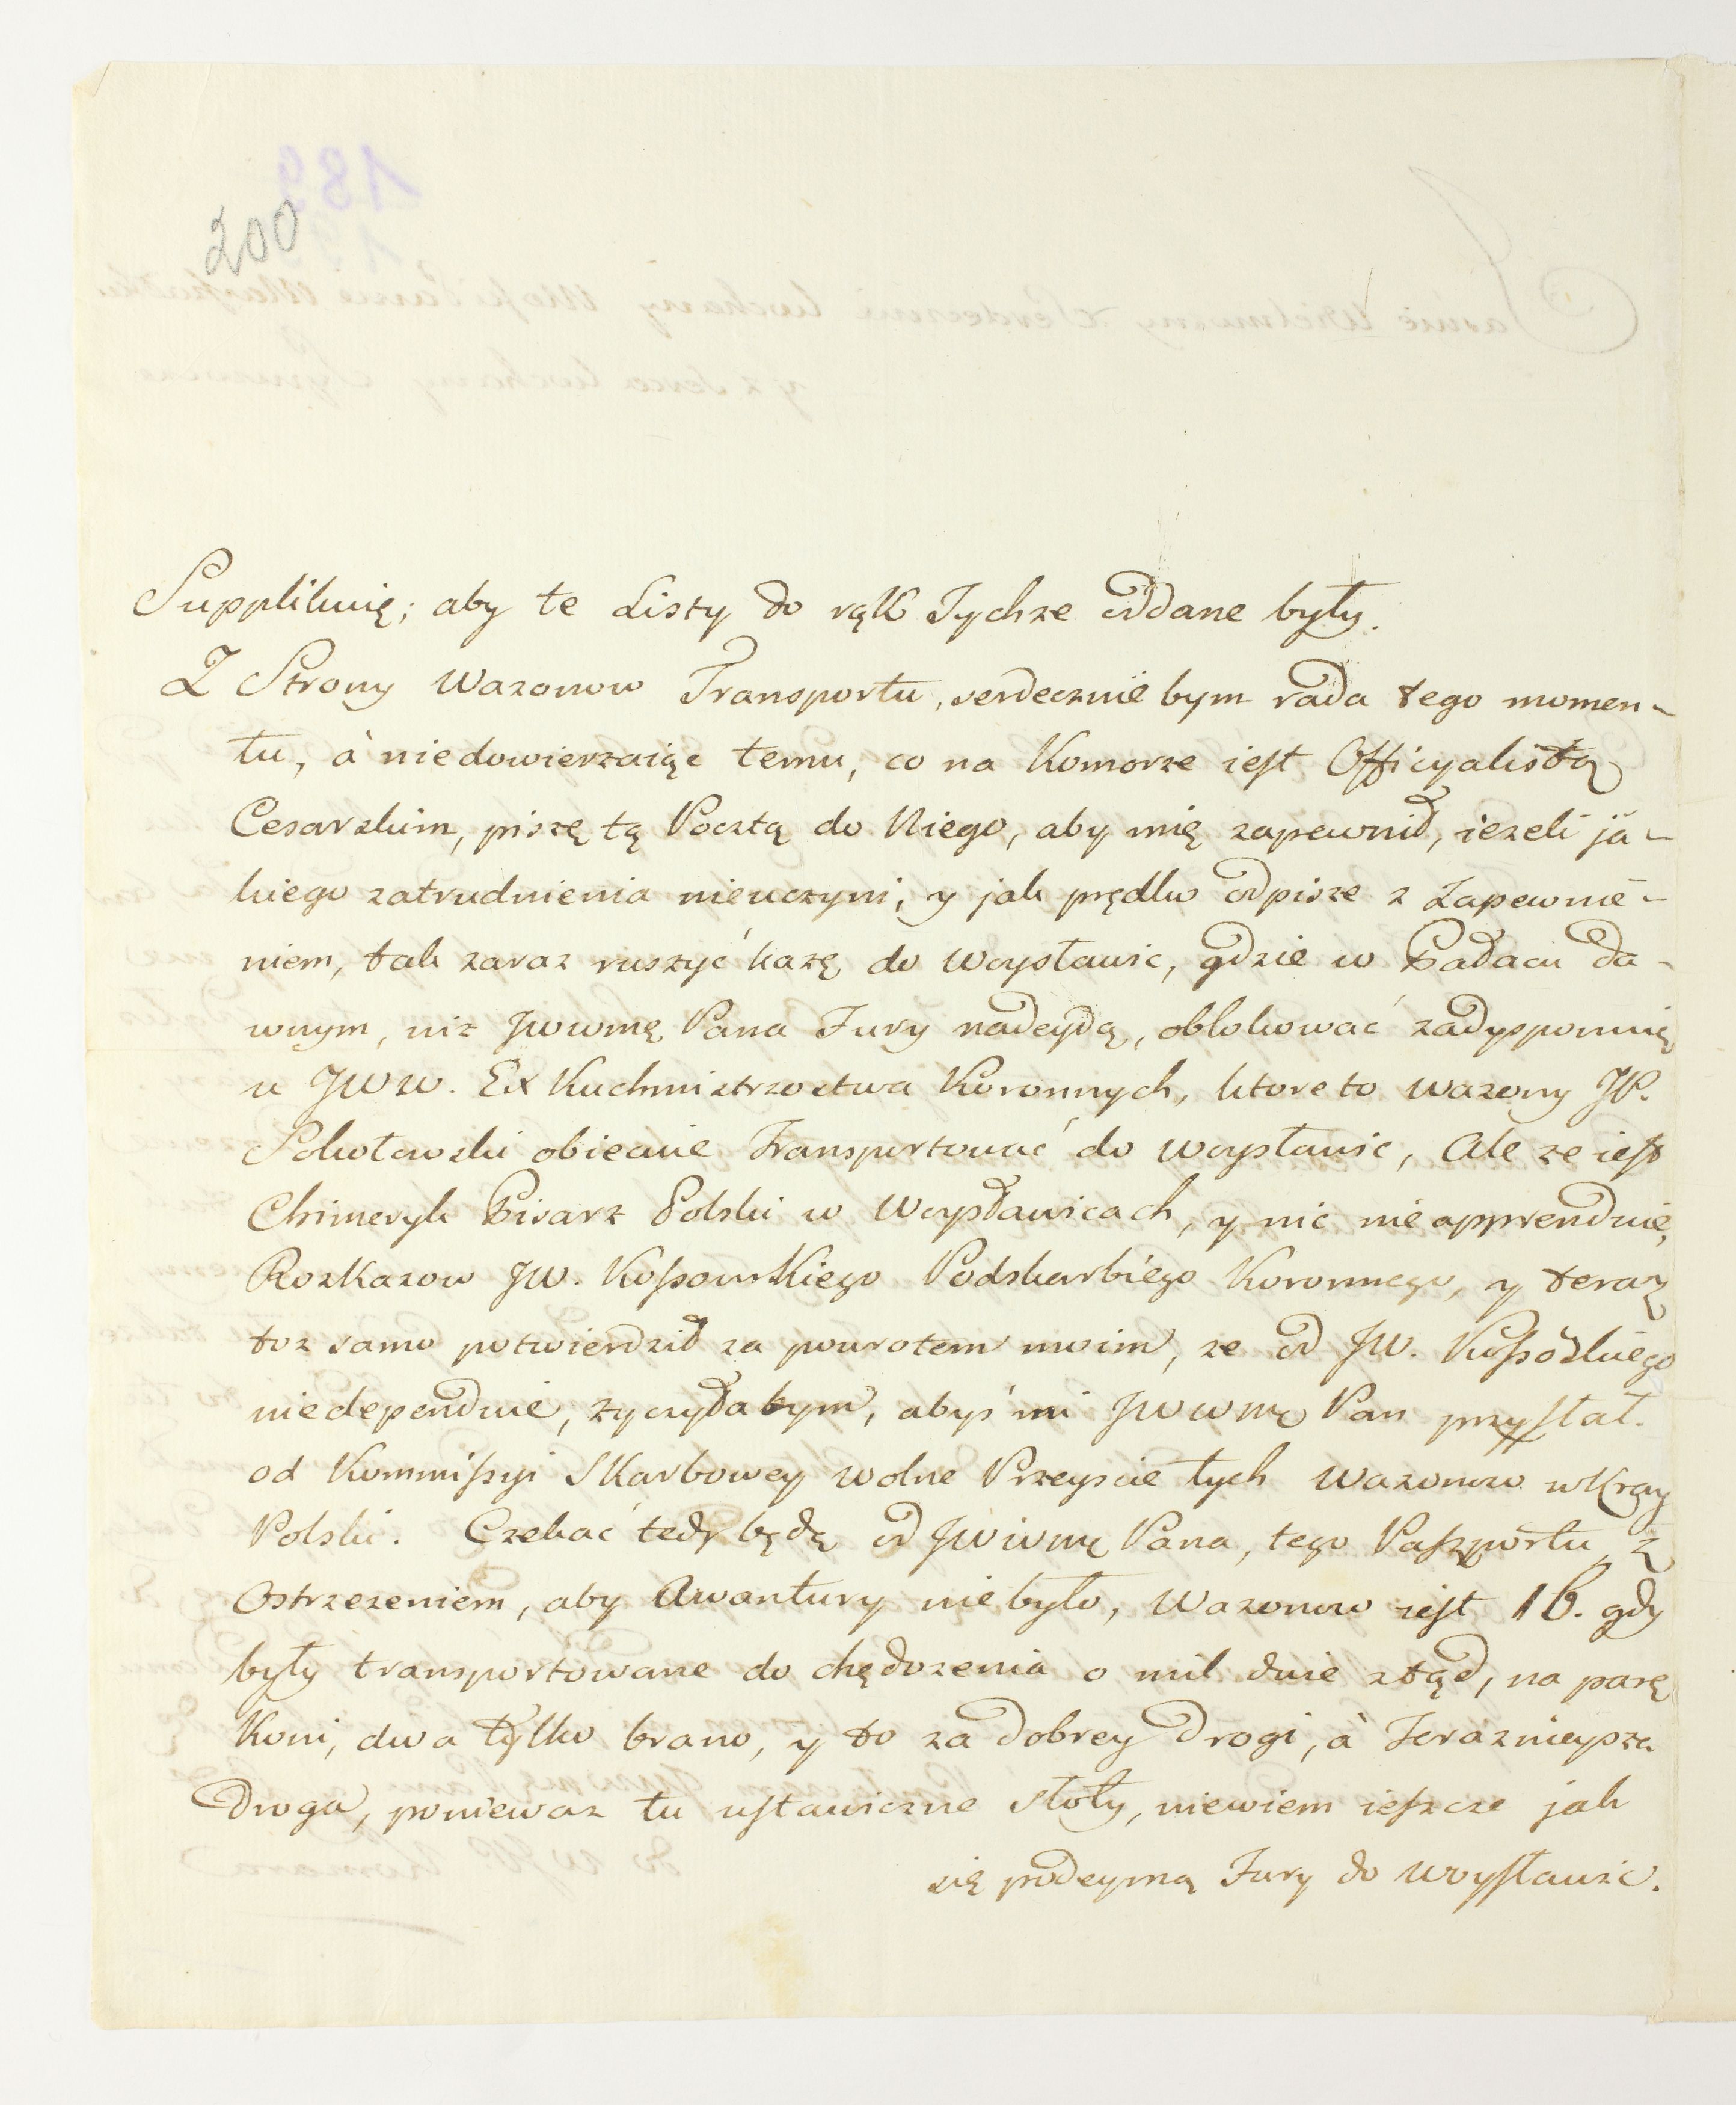 200
Supplikuię; aby te Listy do rąk Tychże oddane były.
Z Strony Wazonow Transportu, serdecznie bym rada tego momen-
tu, à niedowierzaiąc temu, co na Komorze iest Officyalistą
Cesarskim, piszę tą Pocztą do Niego, aby mię zapewnił, iezeli ja-
kiego zatrudnienia nieuczyni, y jak prędko odpisze z Zapewnie-
niem, tak zaraz ruszyć każę do Woysławic, gdzie w Pałacu da-
wnym, niż JWWMę Pana Fury nadeydą, oblokować zadysponuię
u JWW. Ex Kuchmistrzostwa Koronnych, ktore to wazony JP.
Sokołowski obiecuie Transportować do Woysławic, Ale że iest
Chimeryk Pisarz Polski w Woysławicach, y nic nie apprenduie,
Rozkazow JW. Kossowskiego Podskarbiego Koronnego, y teraz
toż samo potwierdził za powrotem moim, że od JW. Kossoskiego
niedependuie, życzyłabym, abyś mi JWWMę Pan przysłał.
od Kommissyi Skarbowey wolne Przeyscie tych Wazonow w Kray
Polski. Czekać tedy będę od JWWMę Pana, tego Paszportu, z
Ostrzeżeniem, aby Awantury nie było, Wazonow iest 16. gdy
były transportowane do chędożenia o mil dwie ztąd, na parę
Koni, dwa tylko brano, y to za dobrey drogi, à Teraznieysza
Droga, ponieważ tu ustawiczne słoty, niewiem ieszcze jak
się podeymą Fury do Woysławic.